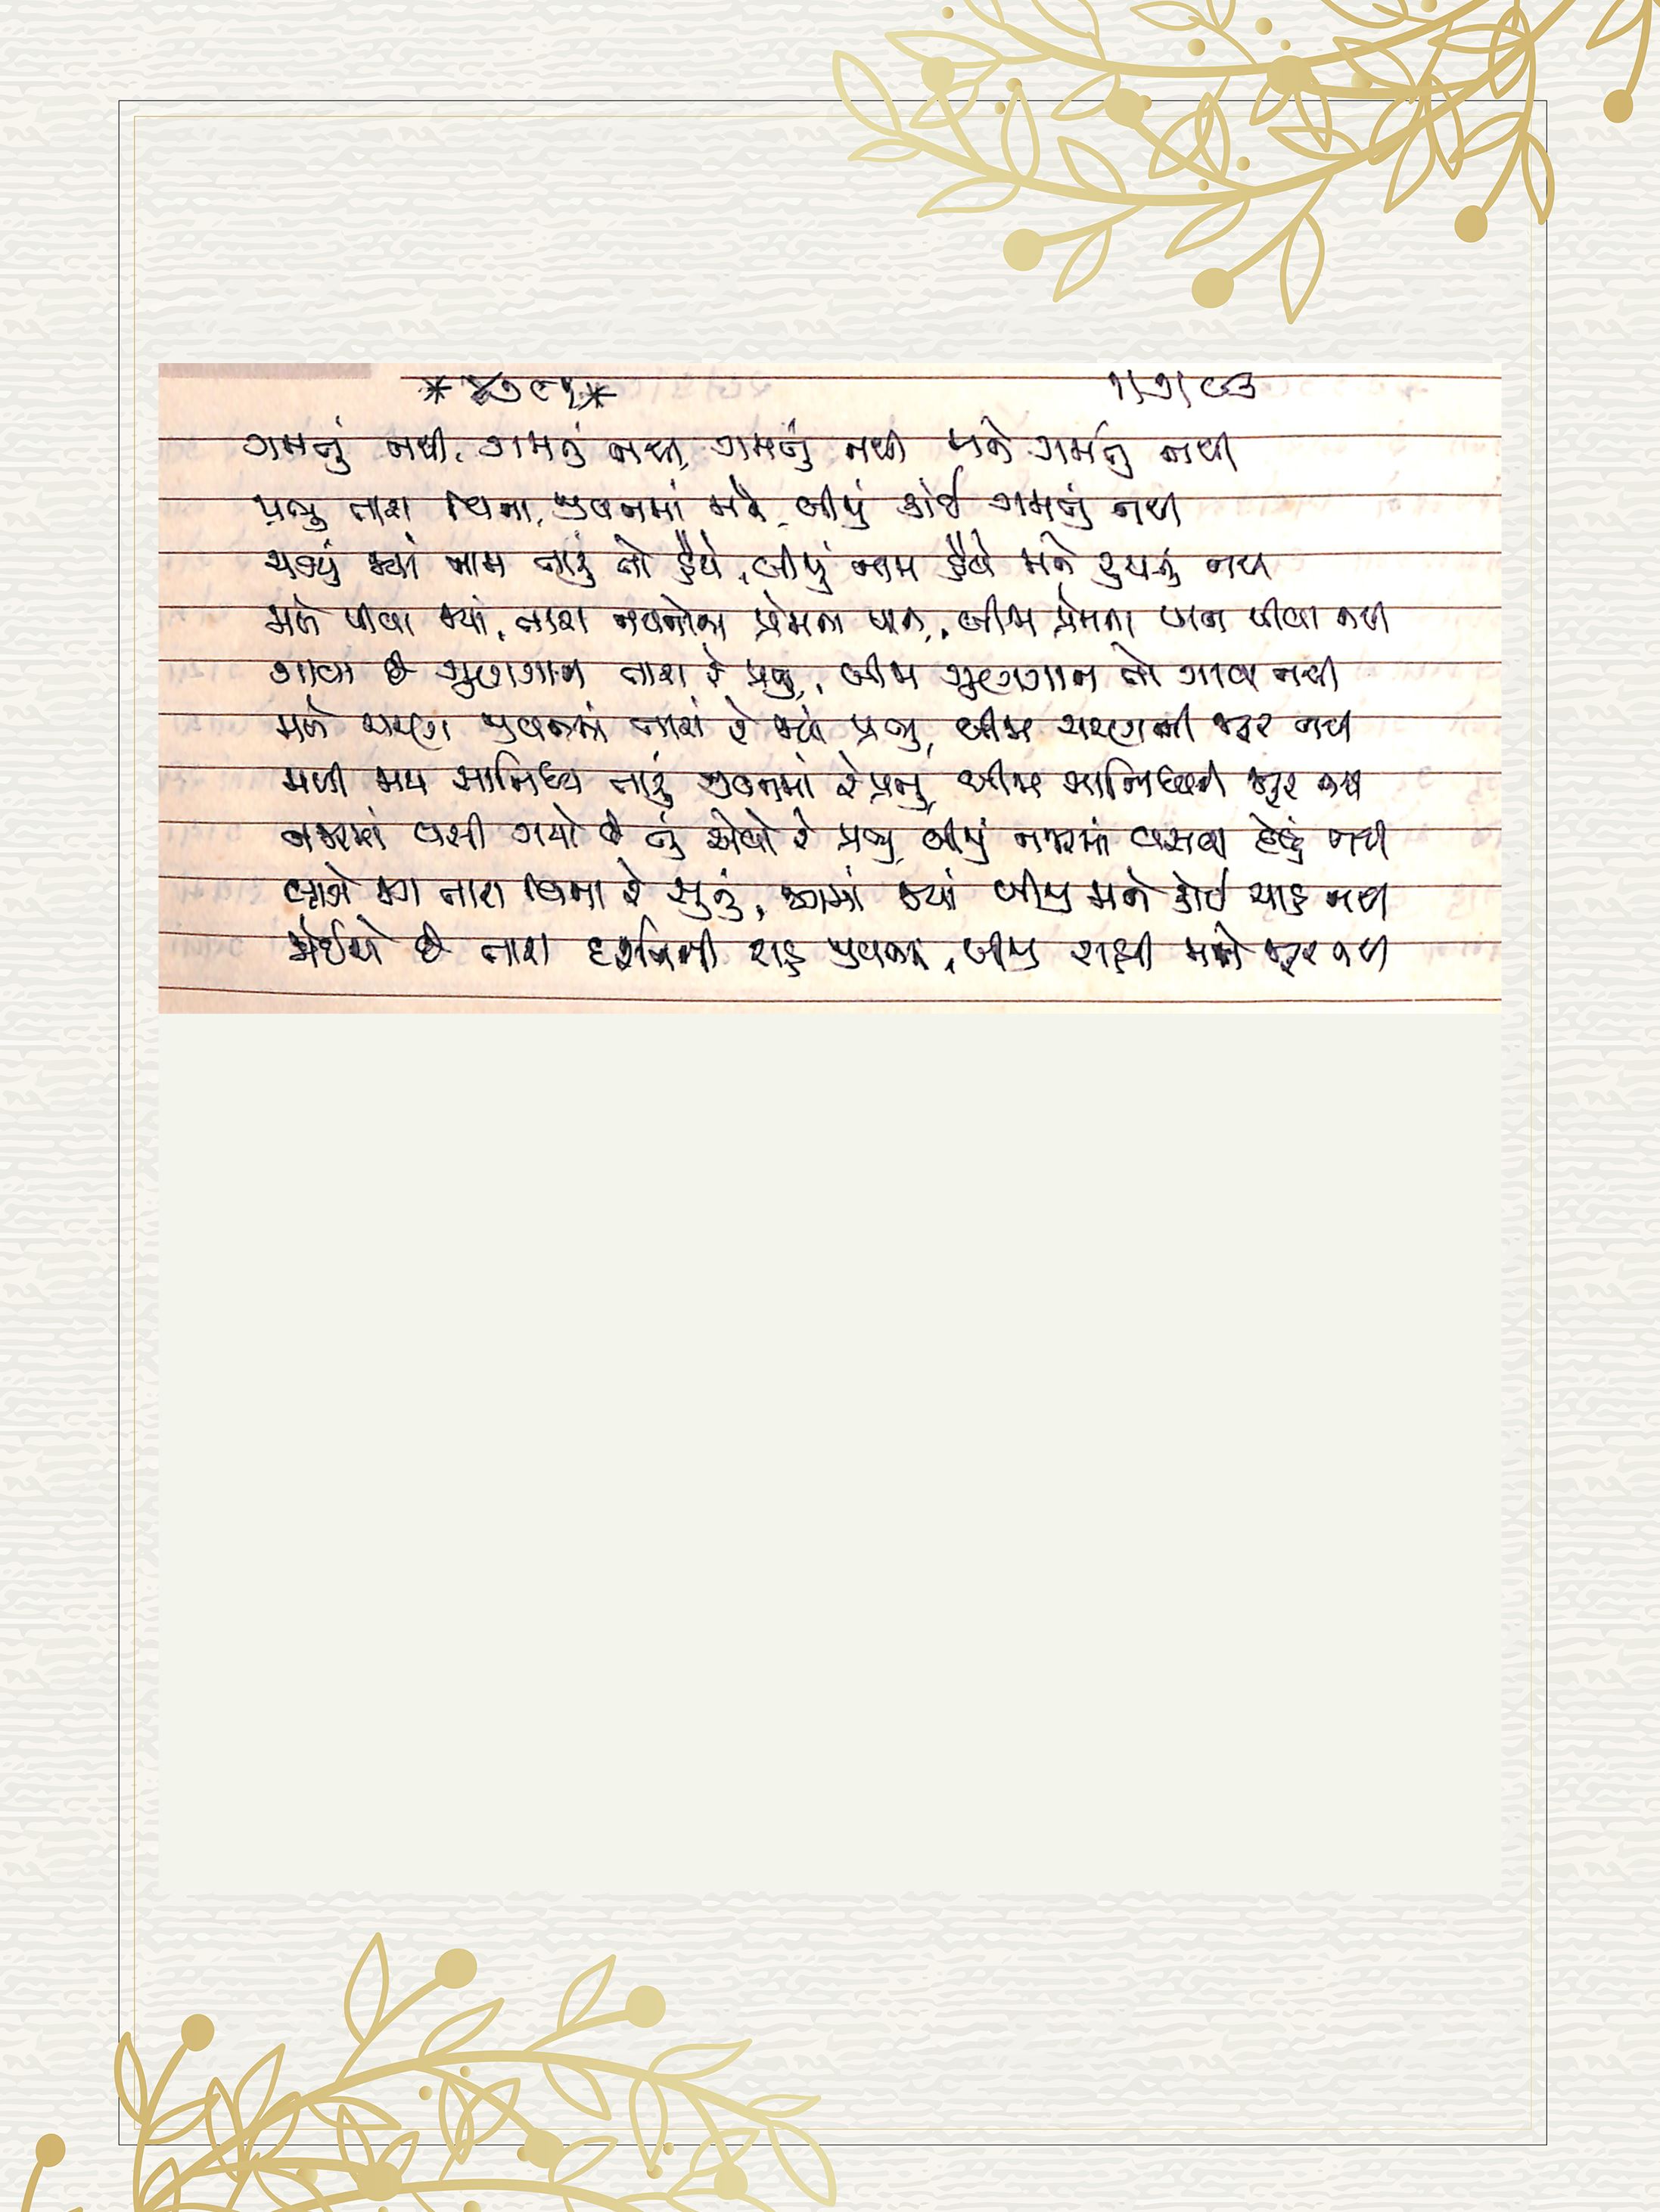 *૪૭૯૫* ૧/૭/૯૩
ગમતું નથી, ગમતું નથી, ગમતું નથી મને ગમતું નથી
પ્રભુ તારા વિના, જીવનમાં મને, બીજું કાંઈ ગમતું નથી
ચડયું જ્યાં નામ તારું તો હૈયે, બીજું નામ હૈયે મને રુચતું નથી
મળે પીવા જ્યાં, તારા નયનોના પ્રેમના પાન, બીજા પ્રેમના પાન પીવા નથી
ગાવા છે ગુણગાન તારા રે પ્રભુ, બીજા ગુણગાન તો ગાવા નથી
મળે ચરણ જીવનમાં તારાં રે જ્યાં પ્રભુ, બીજા ચરણની જરૂર નથી
મળી જાય સાનિધ્ય તારું જીવનમાં રે પ્રભુ, બીજા સાનિધ્યની જરૂર નથી
નજરમાં વસી ગયો છે તું એવો રે પ્રભુ, બીજું નજરમાં વસવા દેવું નથી
લાગે જગ તારા વિના રે સુનું, જગમાં જ્યાં બીજું મને કોઈ યાદ નથી
જોઈએ છે તારા દર્શનની રાહ જીવનમાં, બીજી રાહની મને જરૂર નથી